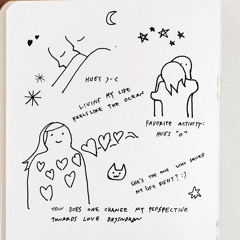 HUGS >-<
LIVING MY LIFE
FEELS LIKE THE OCEAN
FAVORITE ACTIVITY:
HUGS "o"
SHE'S THE ONE WHO
MY LIFE RIGHT? :)
HOW DOES ONE CHANGE MY PERSPECTIVE
TOWARDS LOVE